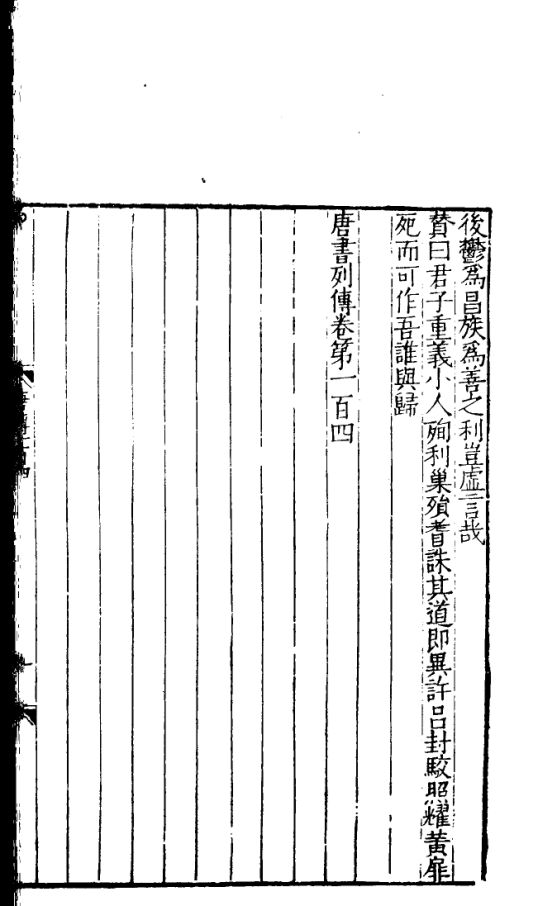 後鬱為昌族為善之利豈虛言哉
贊曰君子重義小人殉利巢殞耆誅其道即異許呂封駮照耀黃扉
死而可作吾誰與歸
唐書列傳卷第一百四